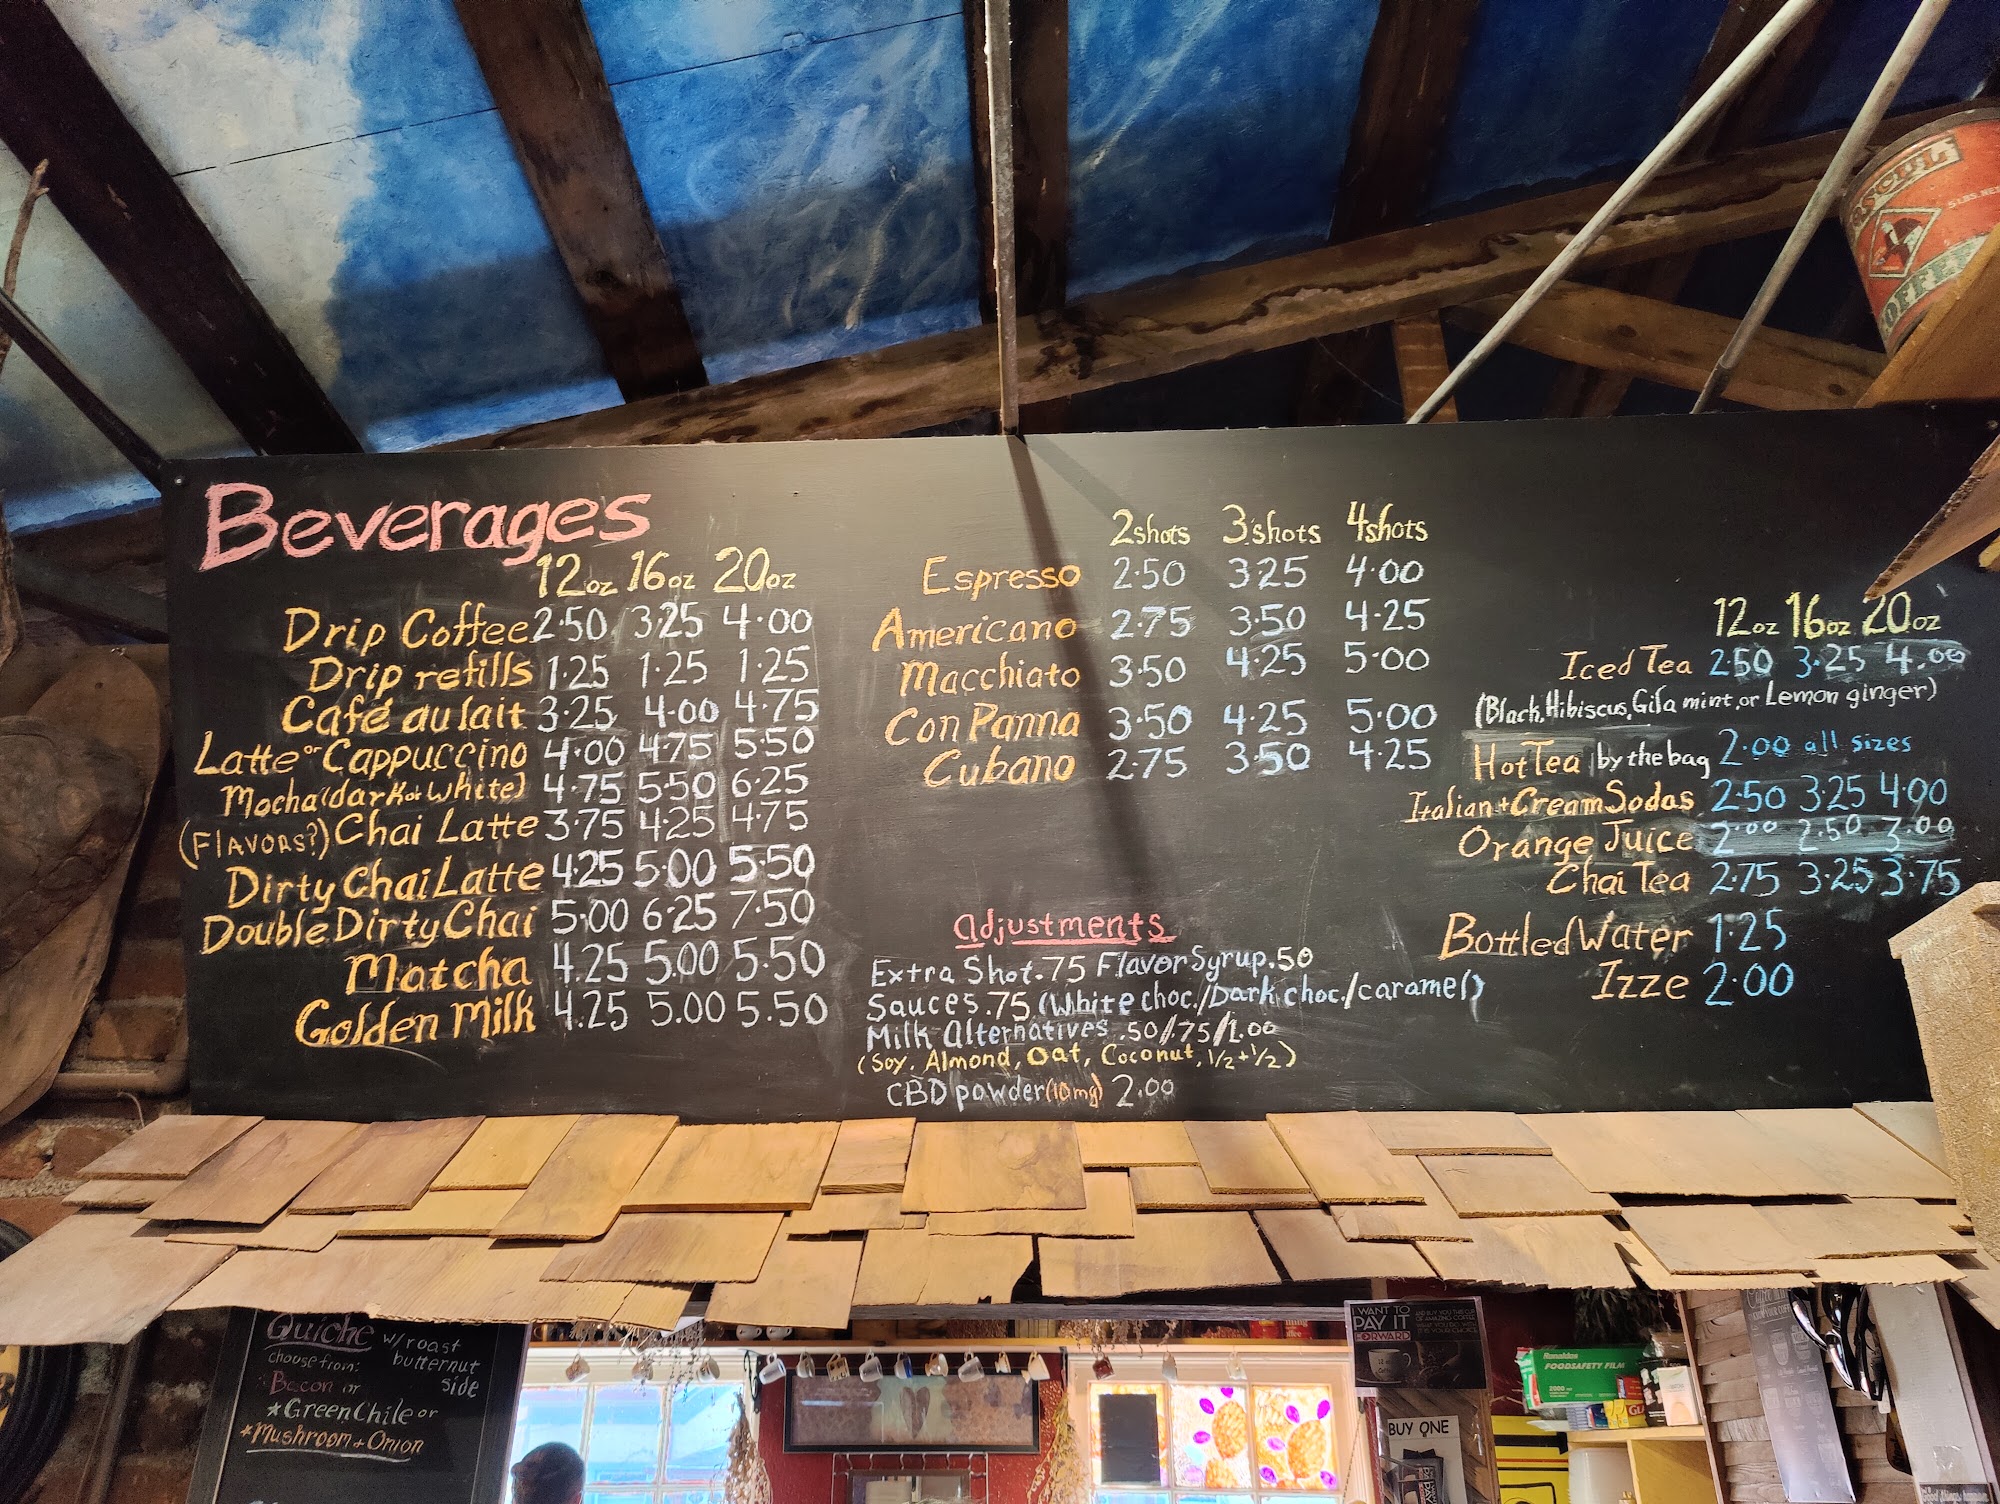 Beverages
12oz 16oz 20oz
Drip Coffee 2.50 3.25 4.00
Drip refills 1.25 1.25 1.25
Café au lait 3.25 4.00 4.75
Latte or Cappuccino 4.00 4.75 5.50
Mocha (dark or white) 4.75 5.50 6.25
(Flavors?) Chai Latte 3.75 4.25 4.75
Dirty Chai Latte 4.25 5.00 5.50
Double Dirty Chai 5.00 6.25 7.50
Matcha 4.25 5.00 5.50
Golden Milk 4.25 5.00 5.50
2shots 3shots 4shots
Espresso 2.50 3.25 4.00
Americano 2.75 3.50 4.25
Macchiato 3.50 4.25 5.00
Con Panna 3.50 4.25 5.00
Cubano 2.75 3.50 4.25
Adjustments
Extra Shot .75 Flavor Syrup .50
Sauces .75 (White choc./Dark choc./caramel)
Milk Alternatives .50/.75/1.00
(Soy, Almond, Oat, Coconut, 1/2+1/2)
CBD powder (10mg) 2.00
12oz 16oz 20oz
Iced Tea 2.50 3.25 4.00
(Black, Hibiscus, Gila mint, or Lemon ginger)
Hot Tea by the bag 2.00 all sizes
Italian + Cream Sodas 2.50 3.25 4.00
Orange Juice 2.00 2.50 3.00
Chai Tea 2.75 3.25 3.75
Bottled Water 1.25
Izze 2.00
5 LBS. NET
COFFEE
Quiche w/ roast
choose from: butternut
Bacon or side
*Green Chile or
*Mushroom + Onion
I WANT TO
PAY IT
FORWARD
BUY ONE
Ronaldas
FOODSAFETY FILM
2000